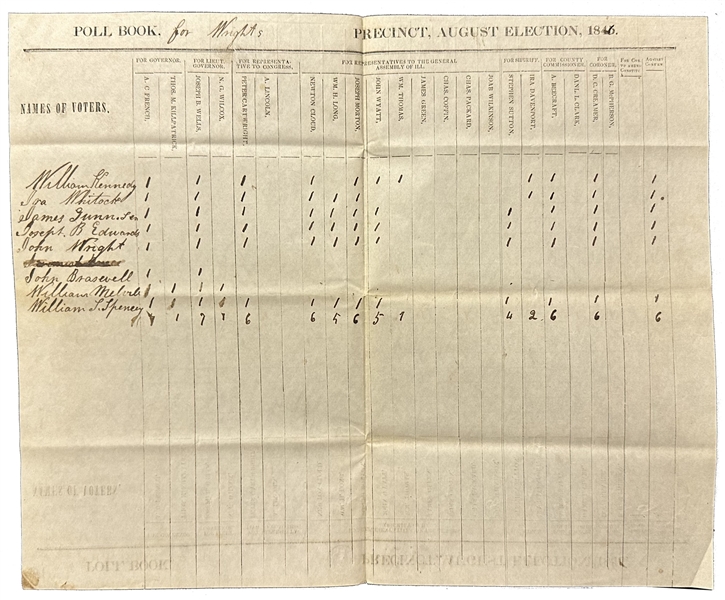 POLL BOOK, for Wrights PRECINCT, AUGUST ELECTION, 1846.
NAMES OF VOTERS,
FOR GOVERNOR.
A. C. FRENCH,
THOS. M. KILPATRICK,
FOR LIEUT. GOVERNOR.
JOSEPH B. WELLS,
N. G. WILCOX,
FOR REPRESENTATIVE TO CONGRESS,
PETER CARTWRIGHT,
A. LINCOLN,
FOR REPRESENTATIVES TO THE GENERAL ASSEMBLY OF ILL.
NEWTON CLOUD,
WM. H. LONG,
JOSEPH MORTON,
JOHN WYATT,
WM. THOMAS,
JAMES GREEN,
CHAS. COFFIN,
CHAS. PACKARD,
JOAB WILKINSON,
FOR SHERIFF.
STEPHEN SUTTON,
IRA DAVENPORT,
FOR COUNTY COMMISSIONER.
A. BEECRAFT,
DANL. L. CLARK,
FOR CORONER.
D. C. CREAMER,
D. G. McPHERSON,
William Kennedy 1 1 1 1 1 1 1 1 1 1 1
Ira Whitock 1 1 1 1 1 1 1 1 1 1 1
James Dunn. Sen 1 1 1 1 1 1 1 1 1 1 1
Joseph B Edwards 1 1 1 1 1 1 1 1 1 1 1
John Wright 1 1 1 1 1 1 1 1 1 1 1
John Brasewell 1 1
William Melvill 1 1 1
William S. Spencey 1 1 1 1 1 1 1 1 1 1 1
7 1 7 1 6 6 5 6 5 1 4 2 6 6 6